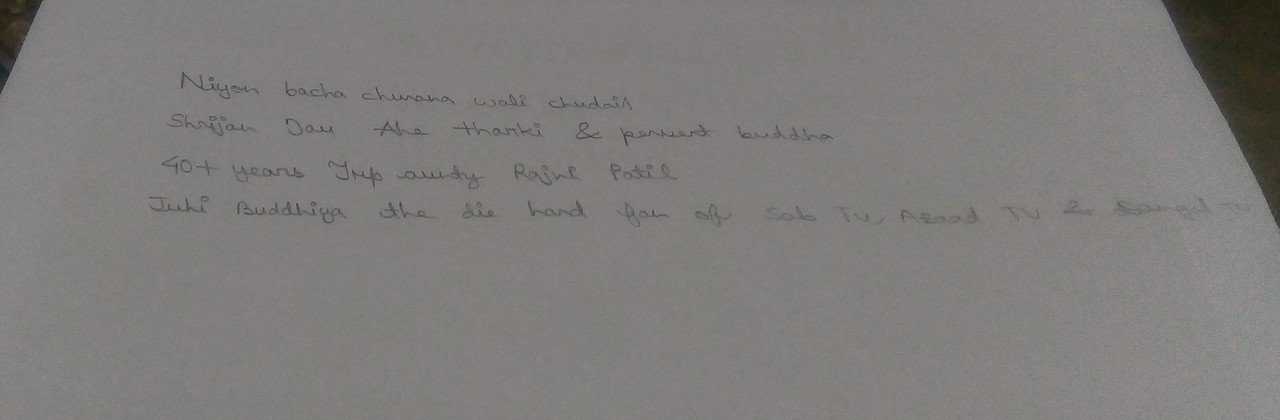 Niyon bacha churana wali chudail
Shrijan Jau the tharki & pervert buddha
40+ years Trp aunty Rajni Patil
Juhi Buddhiya the die hard fan of Sab TV, Azaad TV & Dangal TV